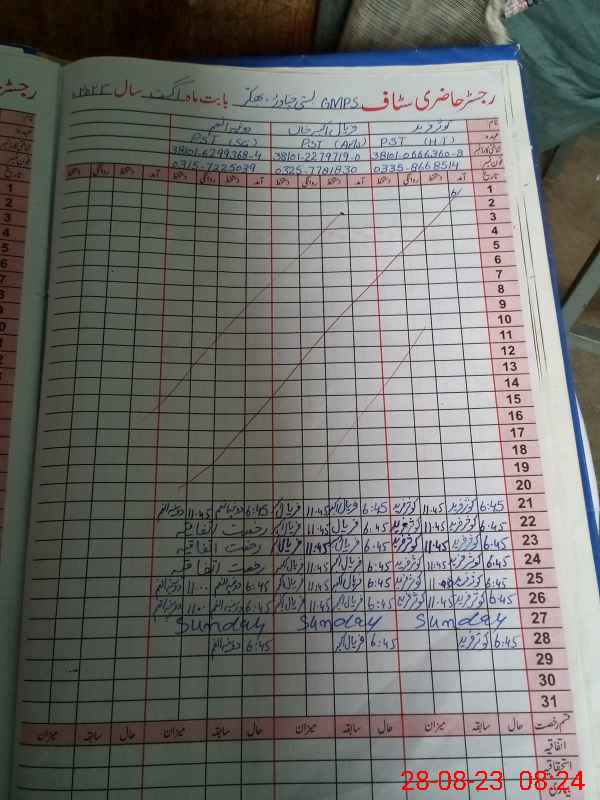 رجسٹر حاضری سٹاف GMPS بستی جیاوڑ، بھکر بابت ماہ اگست سال ۲۰۲۳ء
نام کوثر فرید فریال اکبر خان
عہدہ PST (H.T) PST (Arts) PST (Sci)
شناختی کارڈ نمبر 38101-0666360-8 38101-2279719-0 38101-6299368-4
فون نمبر 0335-8668514 0325-7781830 0315-7325039
تاریخ آمد دستخط روانگی دستخط آمد دستخط روانگی دستخط آمد دستخط روانگی دستخط آمد دستخط روانگی دستخط
1
2
3
4
5
6
7
8
9
10
11
12
13
14
15
16
17
18
19
20
21 6:45 کوثر فرید 11:45 کوثر فرید 6:45 فریال اکبر 11:45 فریال اکبر 6:45 11:45
22 6:45 کوثر فرید 11:45 کوثر فرید 6:45 فریال 11:45 فریال اکبر رخصت اتفاقیہ
23 6:45 کوثر فرید 11:45 کوثر فرید 6:45 فریال اکبر 11:45 فریال اکبر رخصت اتفاقیہ
24 6:45 کوثر فرید 11:45 کوثر فرید 6:45 فریال اکبر 11:45 فریال اکبر رخصت اتفاقیہ
25 6:45 کوثر فرید کوثر فرید 6:45 فریال اکبر 11:45 فریال اکبر 6:45 11:00
26 6:45 کوثر فرید 11:45 کوثر فرید 6:45 فریال اکبر 11:45 فریال اکبر 6:45 11:00
27 Sunday Sunday Sunday
28 6:45 کوثر فرید 6:45 فریال اکبر 6:45
29
30
31
قسم رخصت حال سابقہ میزان حال سابقہ میزان حال سابقہ میزان حال سابقہ میزان
اتفاقیہ
استحقاقیہ
بیماری
28-08-23 08:24